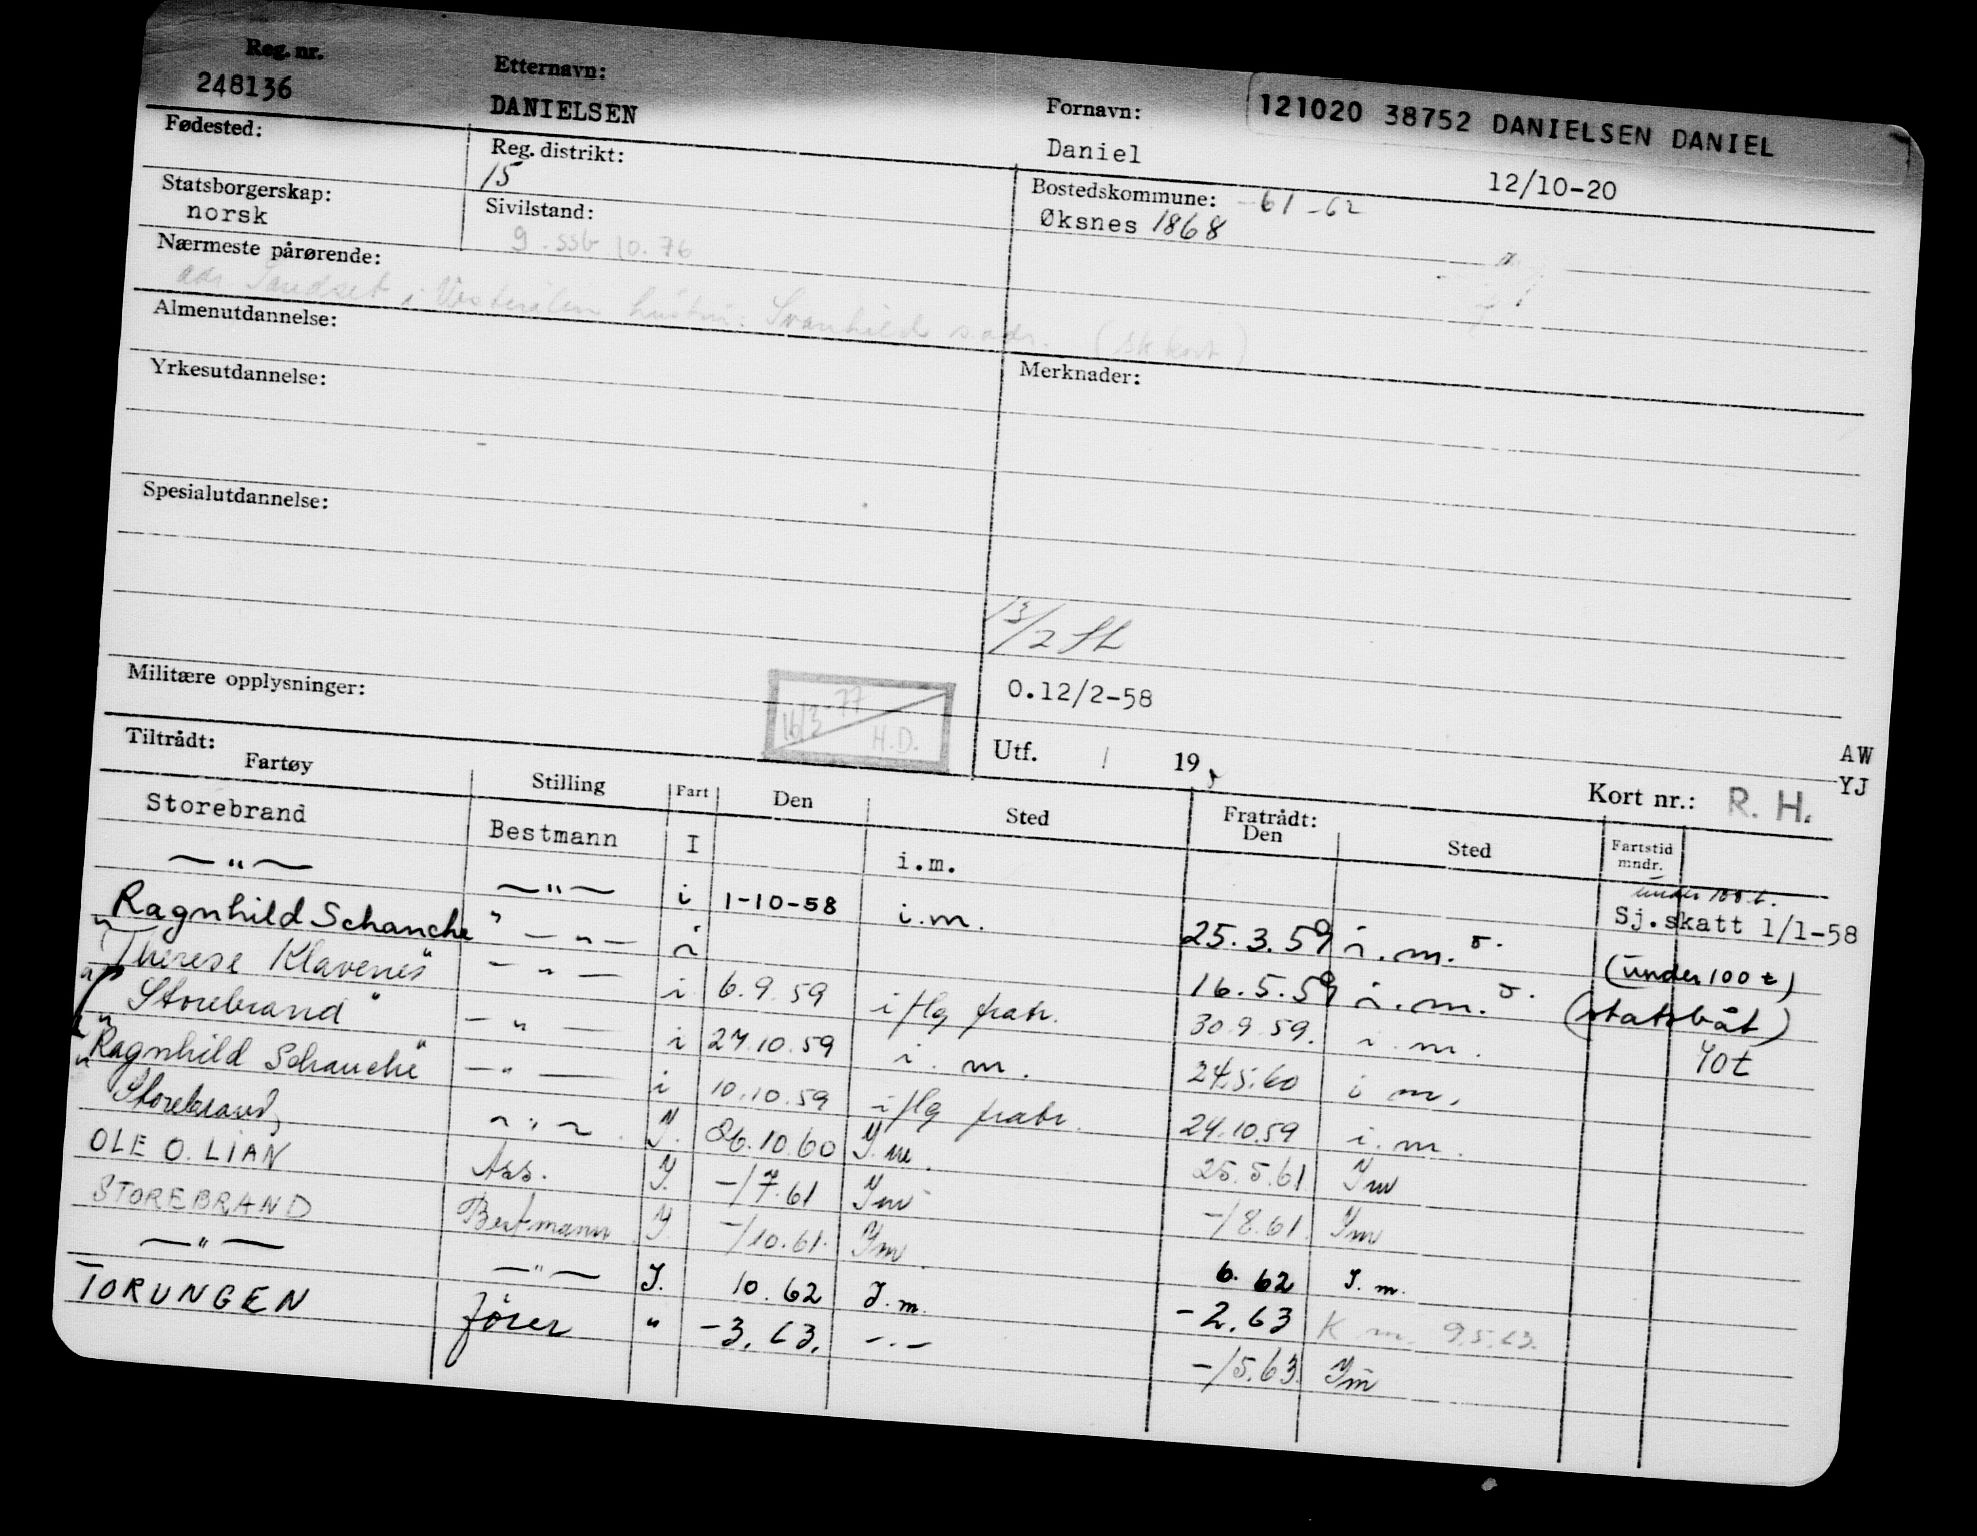 Reg. nr. Etternavn: Fornavn: 121020 38752 DANIELSEN DANIEL
248136 DANIELSEN Daniel 12/10-20
Fødested: Reg. distrikt: Bostedskommune: -61-62
15 Øksnes 1868
Statsborgerskap: Sivilstand:
norsk g. ssb 10.76
Nærmeste pårørende:
adr Sandset i Vesterålen hustru: Svanhild s.adr. (sk kort)
Almenutdannelse: Merknader:
Yrkesutdannelse:
Spesialutdannelse:
13/2 SL
Militære opplysninger: 0.12/2-58
16/3-77 H.D.
Utf. / 19 AW
Kort nr.: R. H. YJ
Tiltrådt: Fratrådt:
Fartøy Stilling Fart Den Sted Den Sted Fartstid mndr.
Storebrand Bestmann I i.m. under 100 t. Sj.skatt 1/1-58
—"— —"— i 1-10-58 i.m. 25.3.59 i.m. (under 100 t)
"Ragnhild Schanche" —"— i 16.5.59 i.m. (statsbåt)
"Therese Klavenes" —"— i 6.9.59 iflg fratr. 30.9.59. i.m. 40t
"Storebrand" —"— i 27.10.59 i.m. 24.5.60 i m.
"Ragnhild Schanche" —"— i 10.10.59 iflg fratr. 24.10.59 i.m.
Storebrand —"— I. 26.10.60 I.m. 25.5.61 Im
OLE O. LIAN Ass. I. -/7.61 Im -/8.61. Im
STOREBRAND Bestmann I -/10.61. Im. 6.62 I.m.
—"— —"— I. 10.62 I.m. -2.63 K m. 9.5.63.
TORUNGEN fører " -3.63. -.- -/5.63. Im